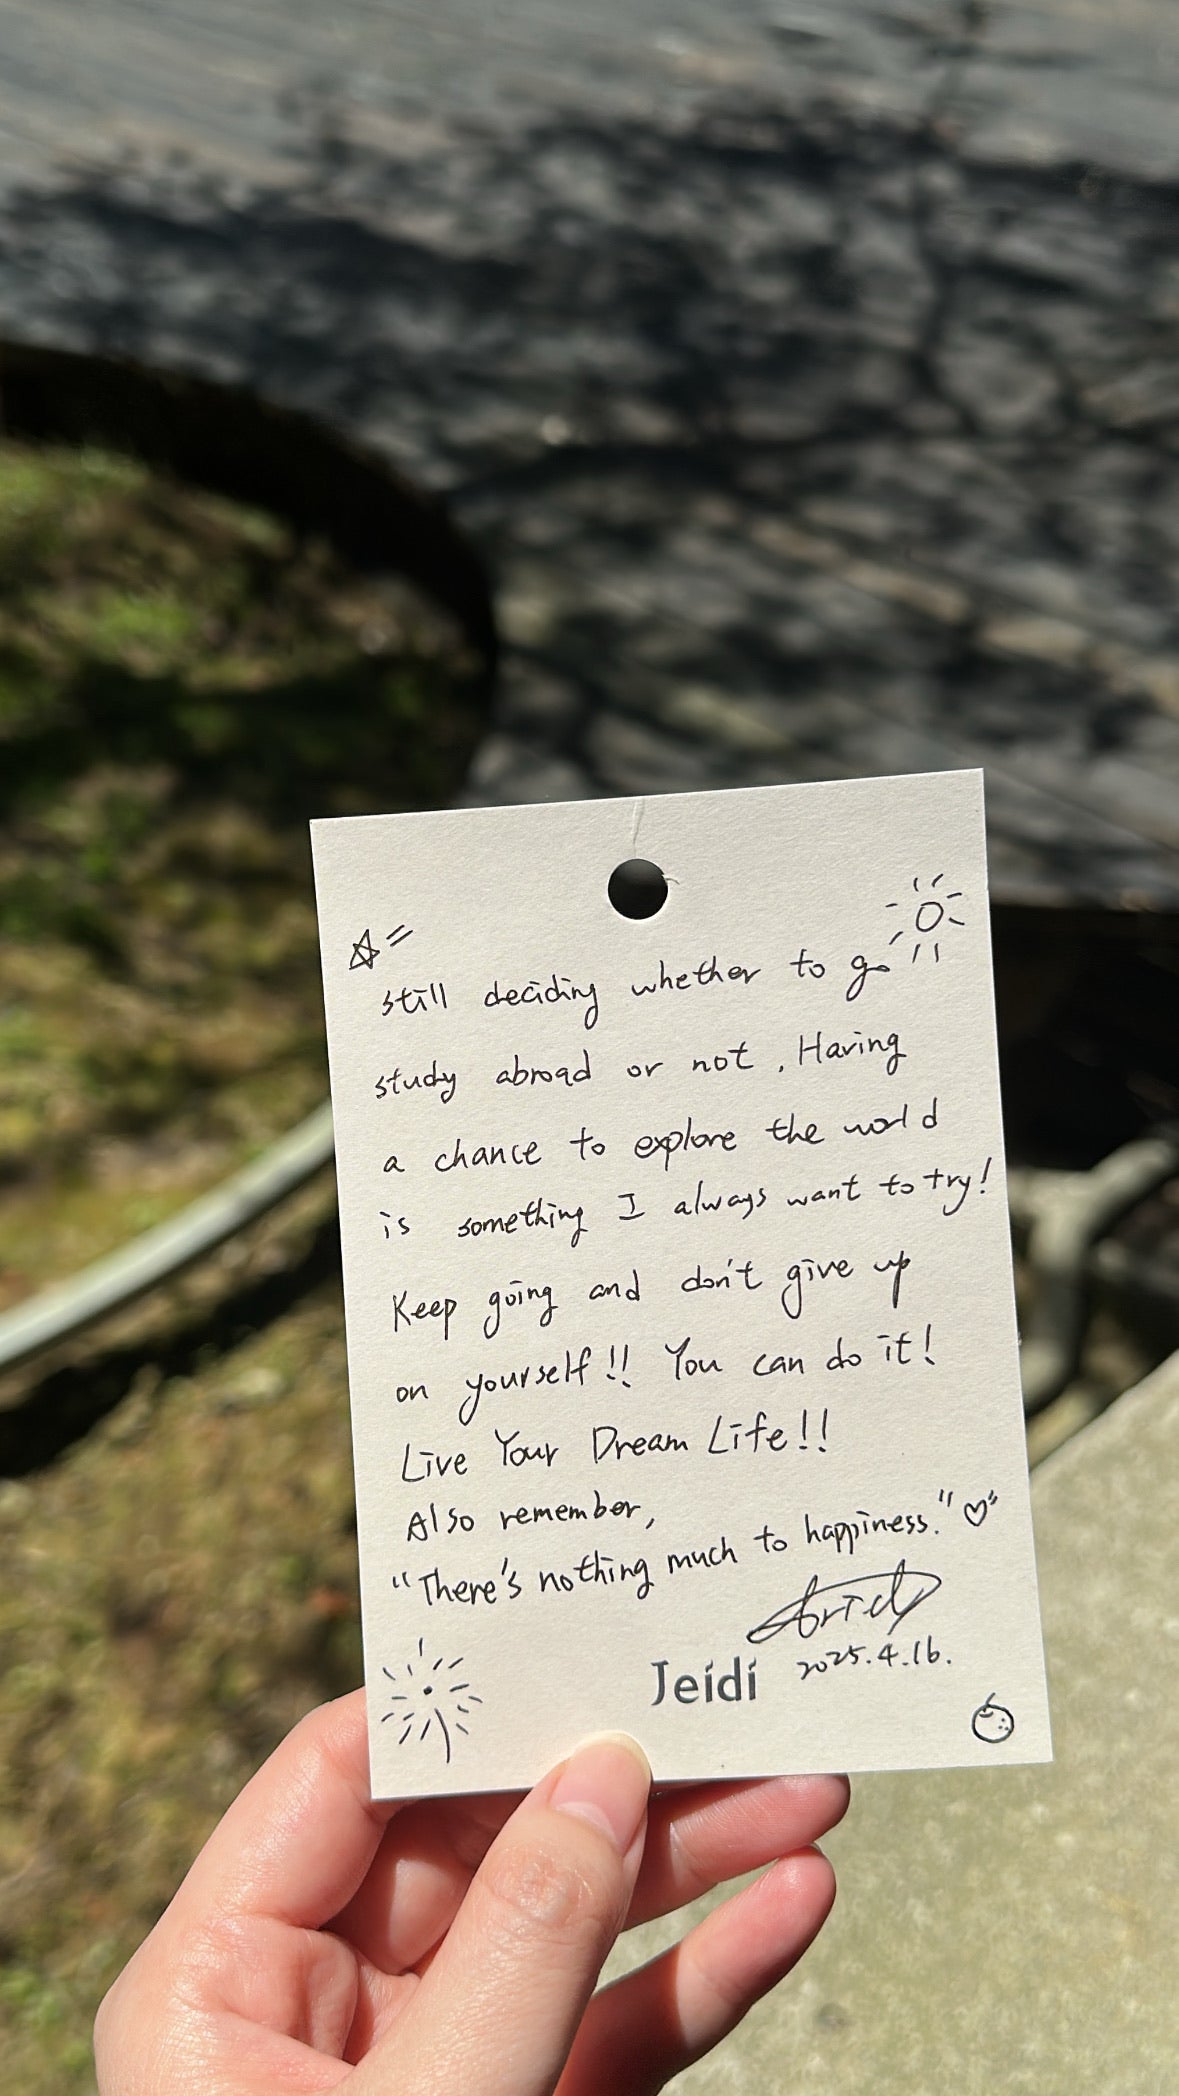 still deciding whether to go
study abroad or not. Having
a chance to explore the world
is something I always want to try!
Keep going and don't give up
on yourself!! You can do it!
Live Your Dream Life!!
Also remember,
"There's nothing much to happiness."
2025.4.16.
Jeidi